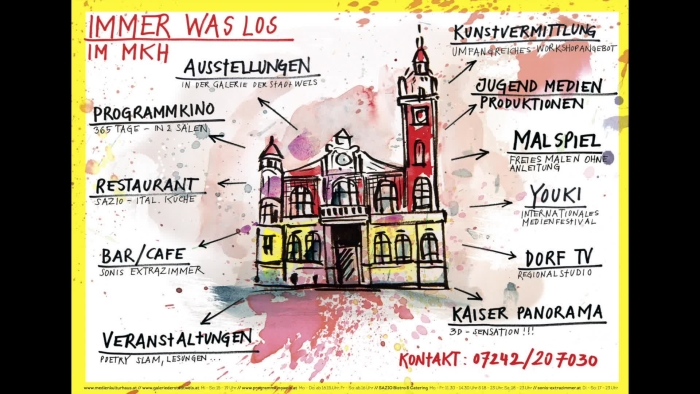 IMMER WAS LOS
IM MKH
AUSSTELLUNGEN
IN DER GALERIE DER STADT WELS
PROGRAMMKINO
365 TAGE - IN 2 SÄLEN
RESTAURANT
SAZIO - ITAL. KÜCHE
BAR/CAFE
SONIS EXTRAZIMMER
VERANSTALTUNGEN
POETRY SLAM, LESUNGEN ...
KUNSTVERMITTLUNG
UMFANGREICHES WORKSHOPANGEBOT
JUGEND MEDIEN
PRODUKTIONEN
MALSPIEL
FREIES MALEN OHNE
ANLEITUNG
YOUKI
INTERNATIONALES
MEDIENFESTIVAL
DORF TV
REGIONALSTUDIO
KAISER PANORAMA
3D - SENSATION!!!
KONTAKT: 07242/207030
www.medienkulturhaus.at